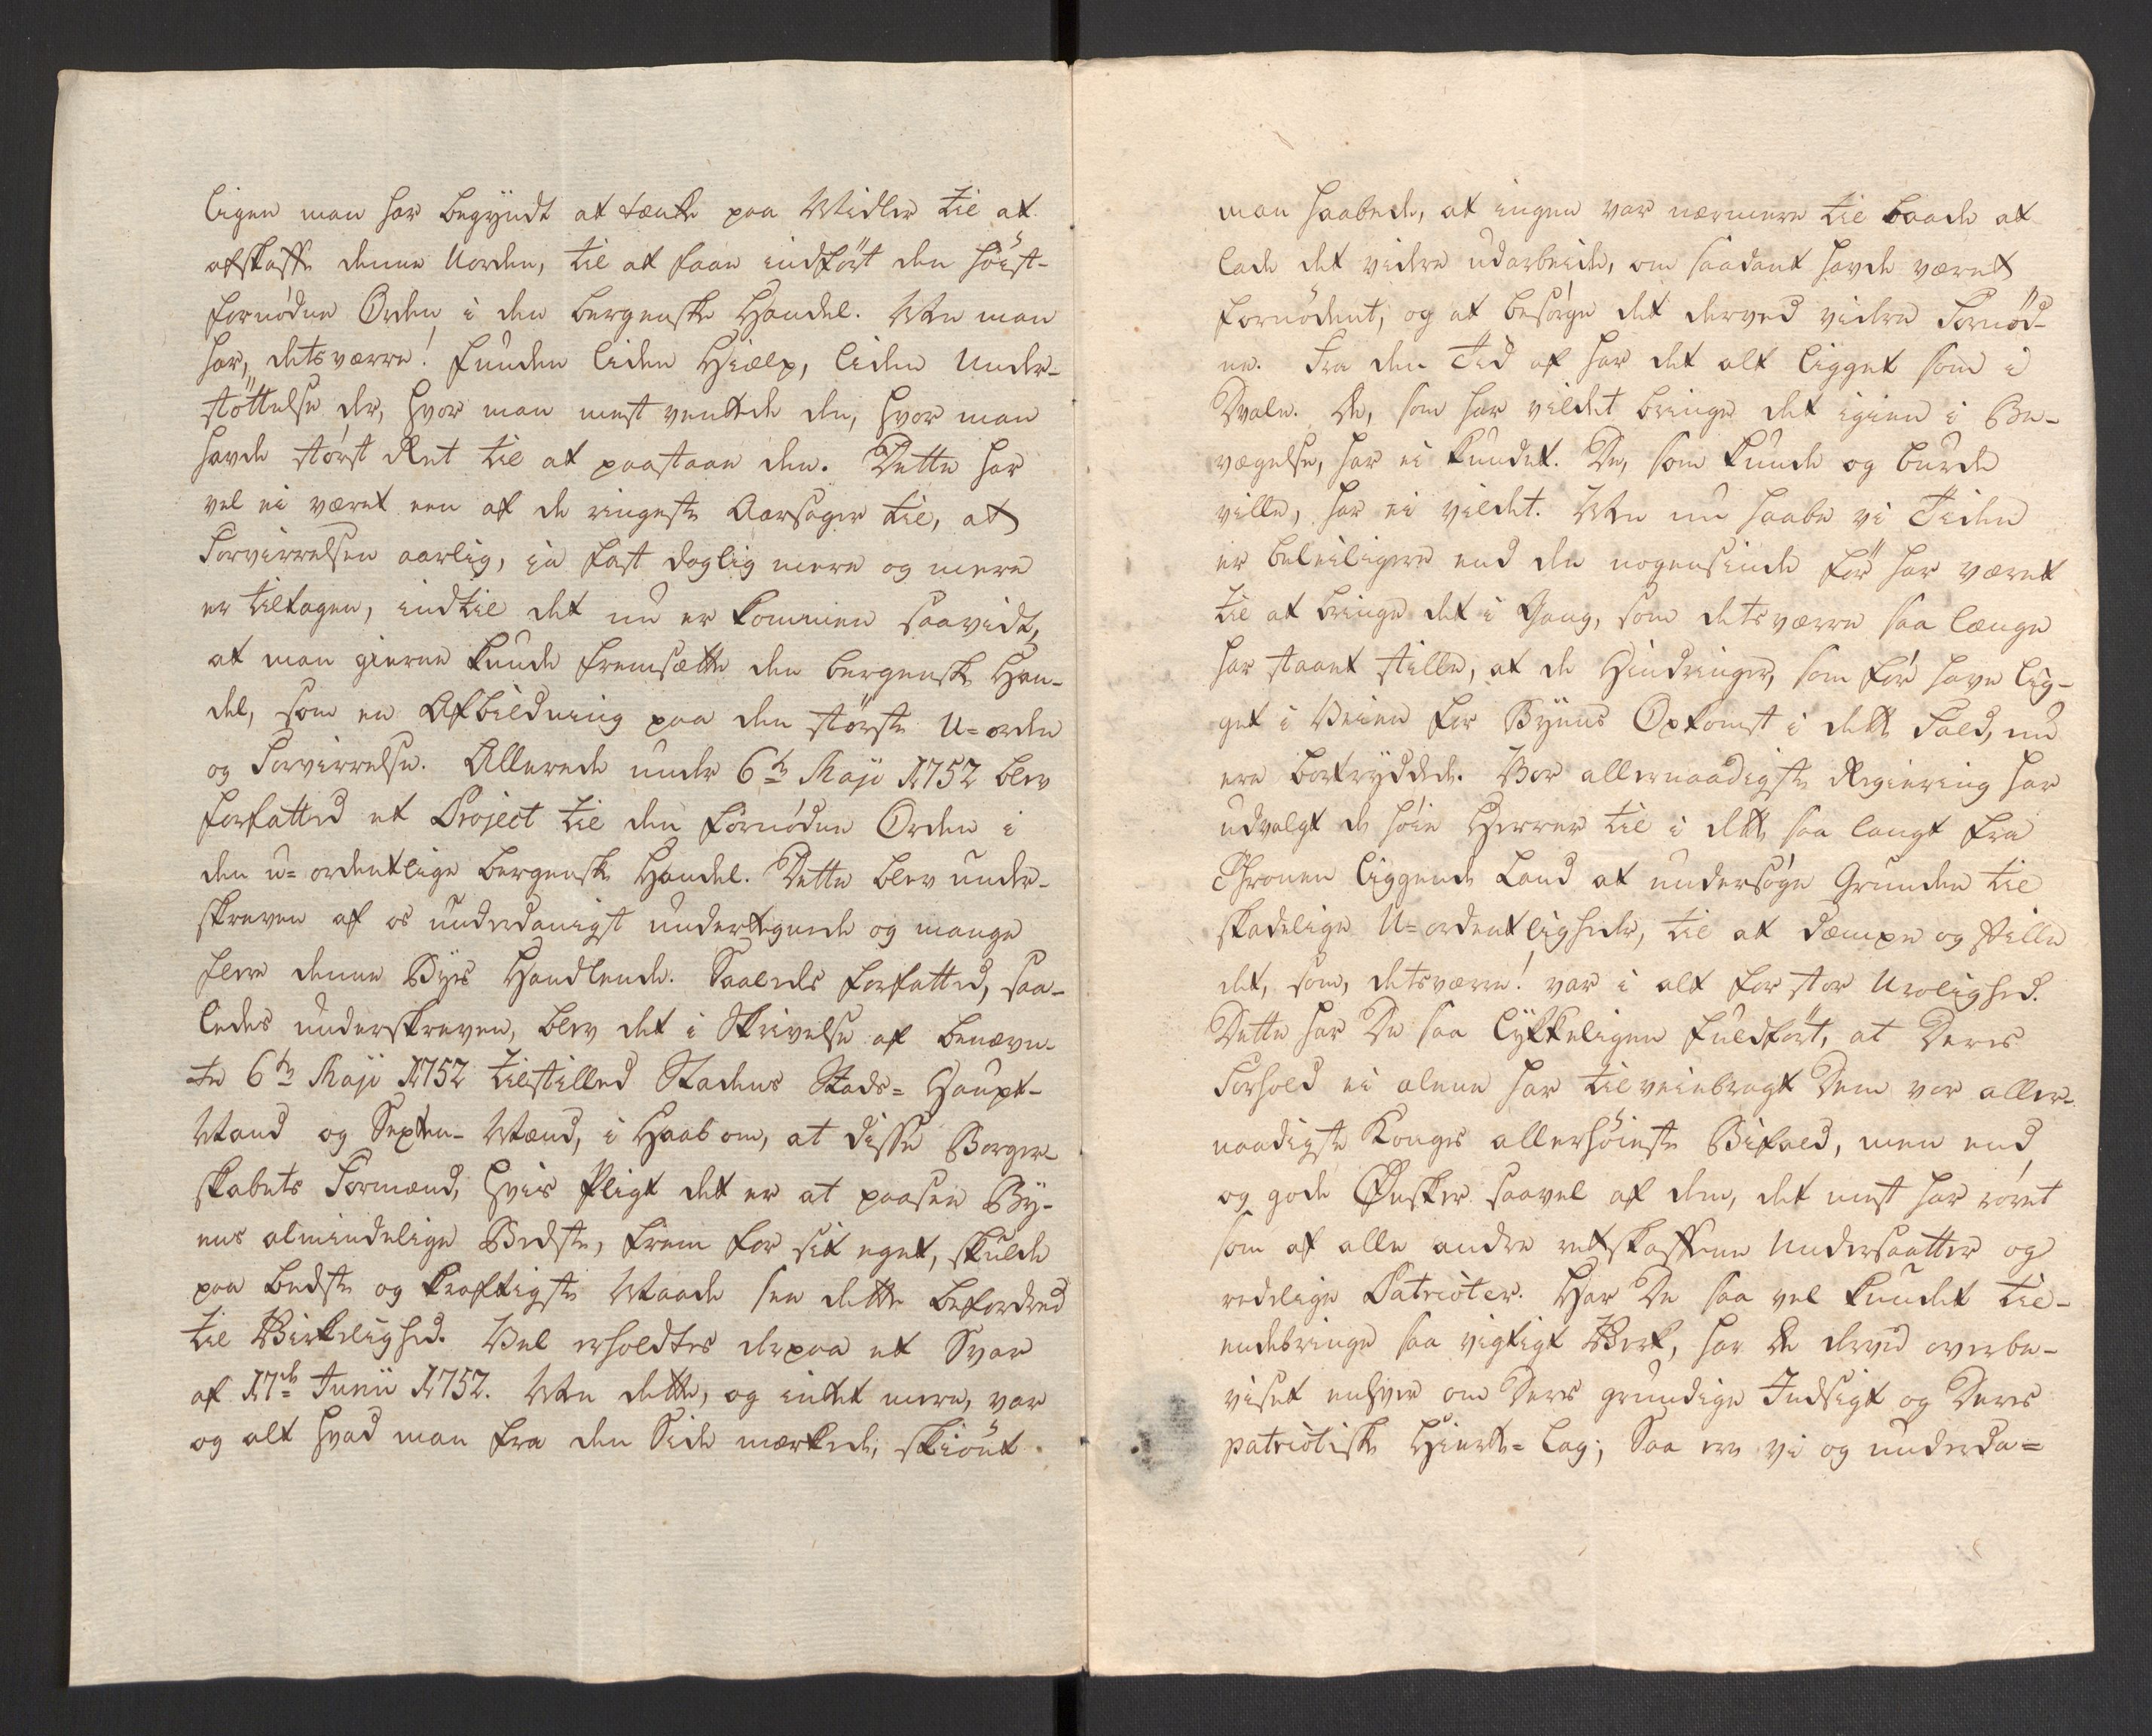 ligen man har begyndt at tænke paa Midler til at
afskaffe denne Uorden, til at faae indført den høist-
fornødne Orden i den bergenske Handel. Men man
har, detsværre! funden liden Hielp, liden Under-
støttelse der, hvor man mest ventede den, hvor man
havde størst Ret til at paastaae den. Dette har
vel ei været een af de ringeste Aarsager til, at
Forvirrelsen aarlig, ja fast daglig mere og mere
er tiltagen, indtil det nu er kommen saavidt,
at man gierne kunde fremsætte den bergenske Han-
del, som en Afbildning paa den største U=orden
og Forvirrelse. Allerede under 6te Maji 1752 blev
forfatted et Project til den fornødne Orden i
den u=ordentlige bergenske Handel. Dette blev under-
skreven af os underdanigst undertegnede og mange
flere denne Byes Handlende. Saaledes forfatted, saa-
ledes underskreven, blev det i Skrivelse af benævn-
te 6te Maji 1752 tilstilled Stadens Stads= Haupt-
Mand og Sexten- Mænd, i Haab om, at disse Borger-
skabets Formænd, hvis Pligt det er at paasee By-
ens almindelige Bedste, frem for sit eget, skulde
paa bedste og kraftigste Maade see dette befordred
til Virkelighed. Vel erholdtes derpaa et Svar
af 17de Junii 1752. Men dette, og intet mere, var
og alt hvad man fra den Side mærkede, skiønt
man haabede, at ingen var nærmere til baade at
lade det videre udarbeide, om saadant havde været
fornødent, og at besørge det derved videre Fornød-
ne. Fra den Tid af har det alt ligget som i
Dvale. De, som har vildet bringe det igien i Be-
vægelse, har ei kundet. De, som kunde og burde
ville, har ei vildet. Men nu haabe vi Tiden
er beleiligere end den nogensinde før har været
til at bringe det i Gang, som detsværre saa længe
har staaet stille, at de Hindringer, som før have lig-
get i Veien for Byens Opkomst i dette Fald, nu
ere bortryddede. Vor allernaadigste Regiering har
udvalgt de høie Herrer til i dette saa langt fra
Thronen liggende Land at undersøge Grunden til
skadelige U=ordentligheder, til at dæmpe og stille
det, som, detsværre! var i alt for stor Urolighed.
Dette har De saa lykkeligen fuldført, at Deres
Forhold ei alene har tilveiebragt Dem vor aller-
naadigste Konges allerhøieste Bifald, men end
og gode Ønsker saavel af dem, det mest har røret
som af alle andre retskaffene Undersaatter og
redelige Patrioter. Har De saa vel kundet til-
endebringe saa vigtigt Verk, har De derved overbe-
viset enhver om Deres grundige Indsigt og Deres
patriotiske Hierte=lag; Saa ere vi og underda=